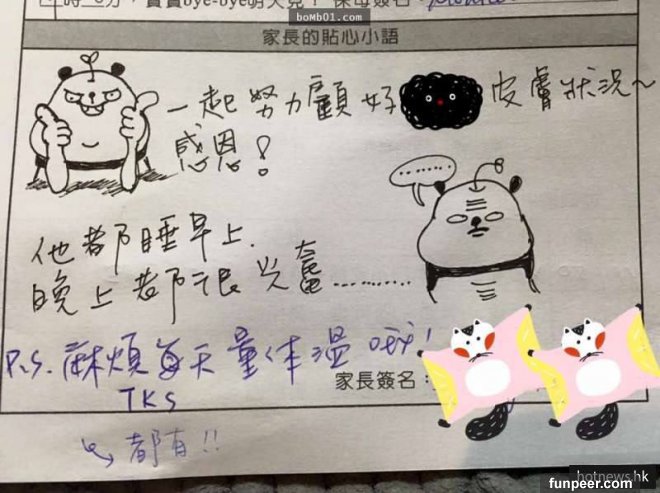 bomb01.com
家長的貼心小語
一起努力顧好 皮膚狀況~
感恩!
........
他都睡早上.
晚上都很興奮.........
P.S. 麻煩每天量体溫哦!
TKS
家長簽名:
都有!!
hotnews.hk
funpeer.com